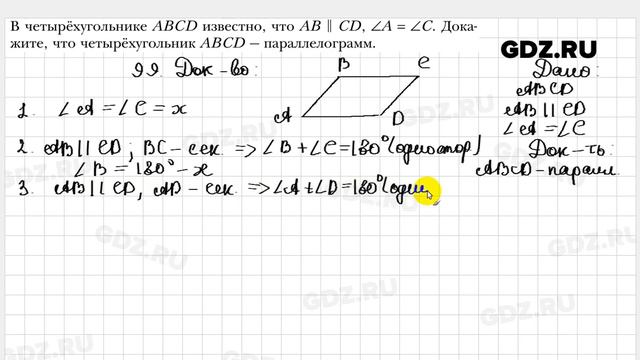 В четырёхугольнике ABCD известно, что AB ∥ CD, ∠A = ∠C. Дока-
жите, что четырёхугольник ABCD — параллелограмм.
GDZ.RU
99. Док-во:
B C
A D
Дано:
ABCD
AB∥CD
∠A=∠C
Док-ть:
ABCD-паралл.
1. ∠A=∠C=x
2. AB∥CD; BC-сек => ∠B+∠C=180°(одностор)
∠B=180°-x
3. AB∥CD, AD-сек. => ∠A+∠D=180°(один